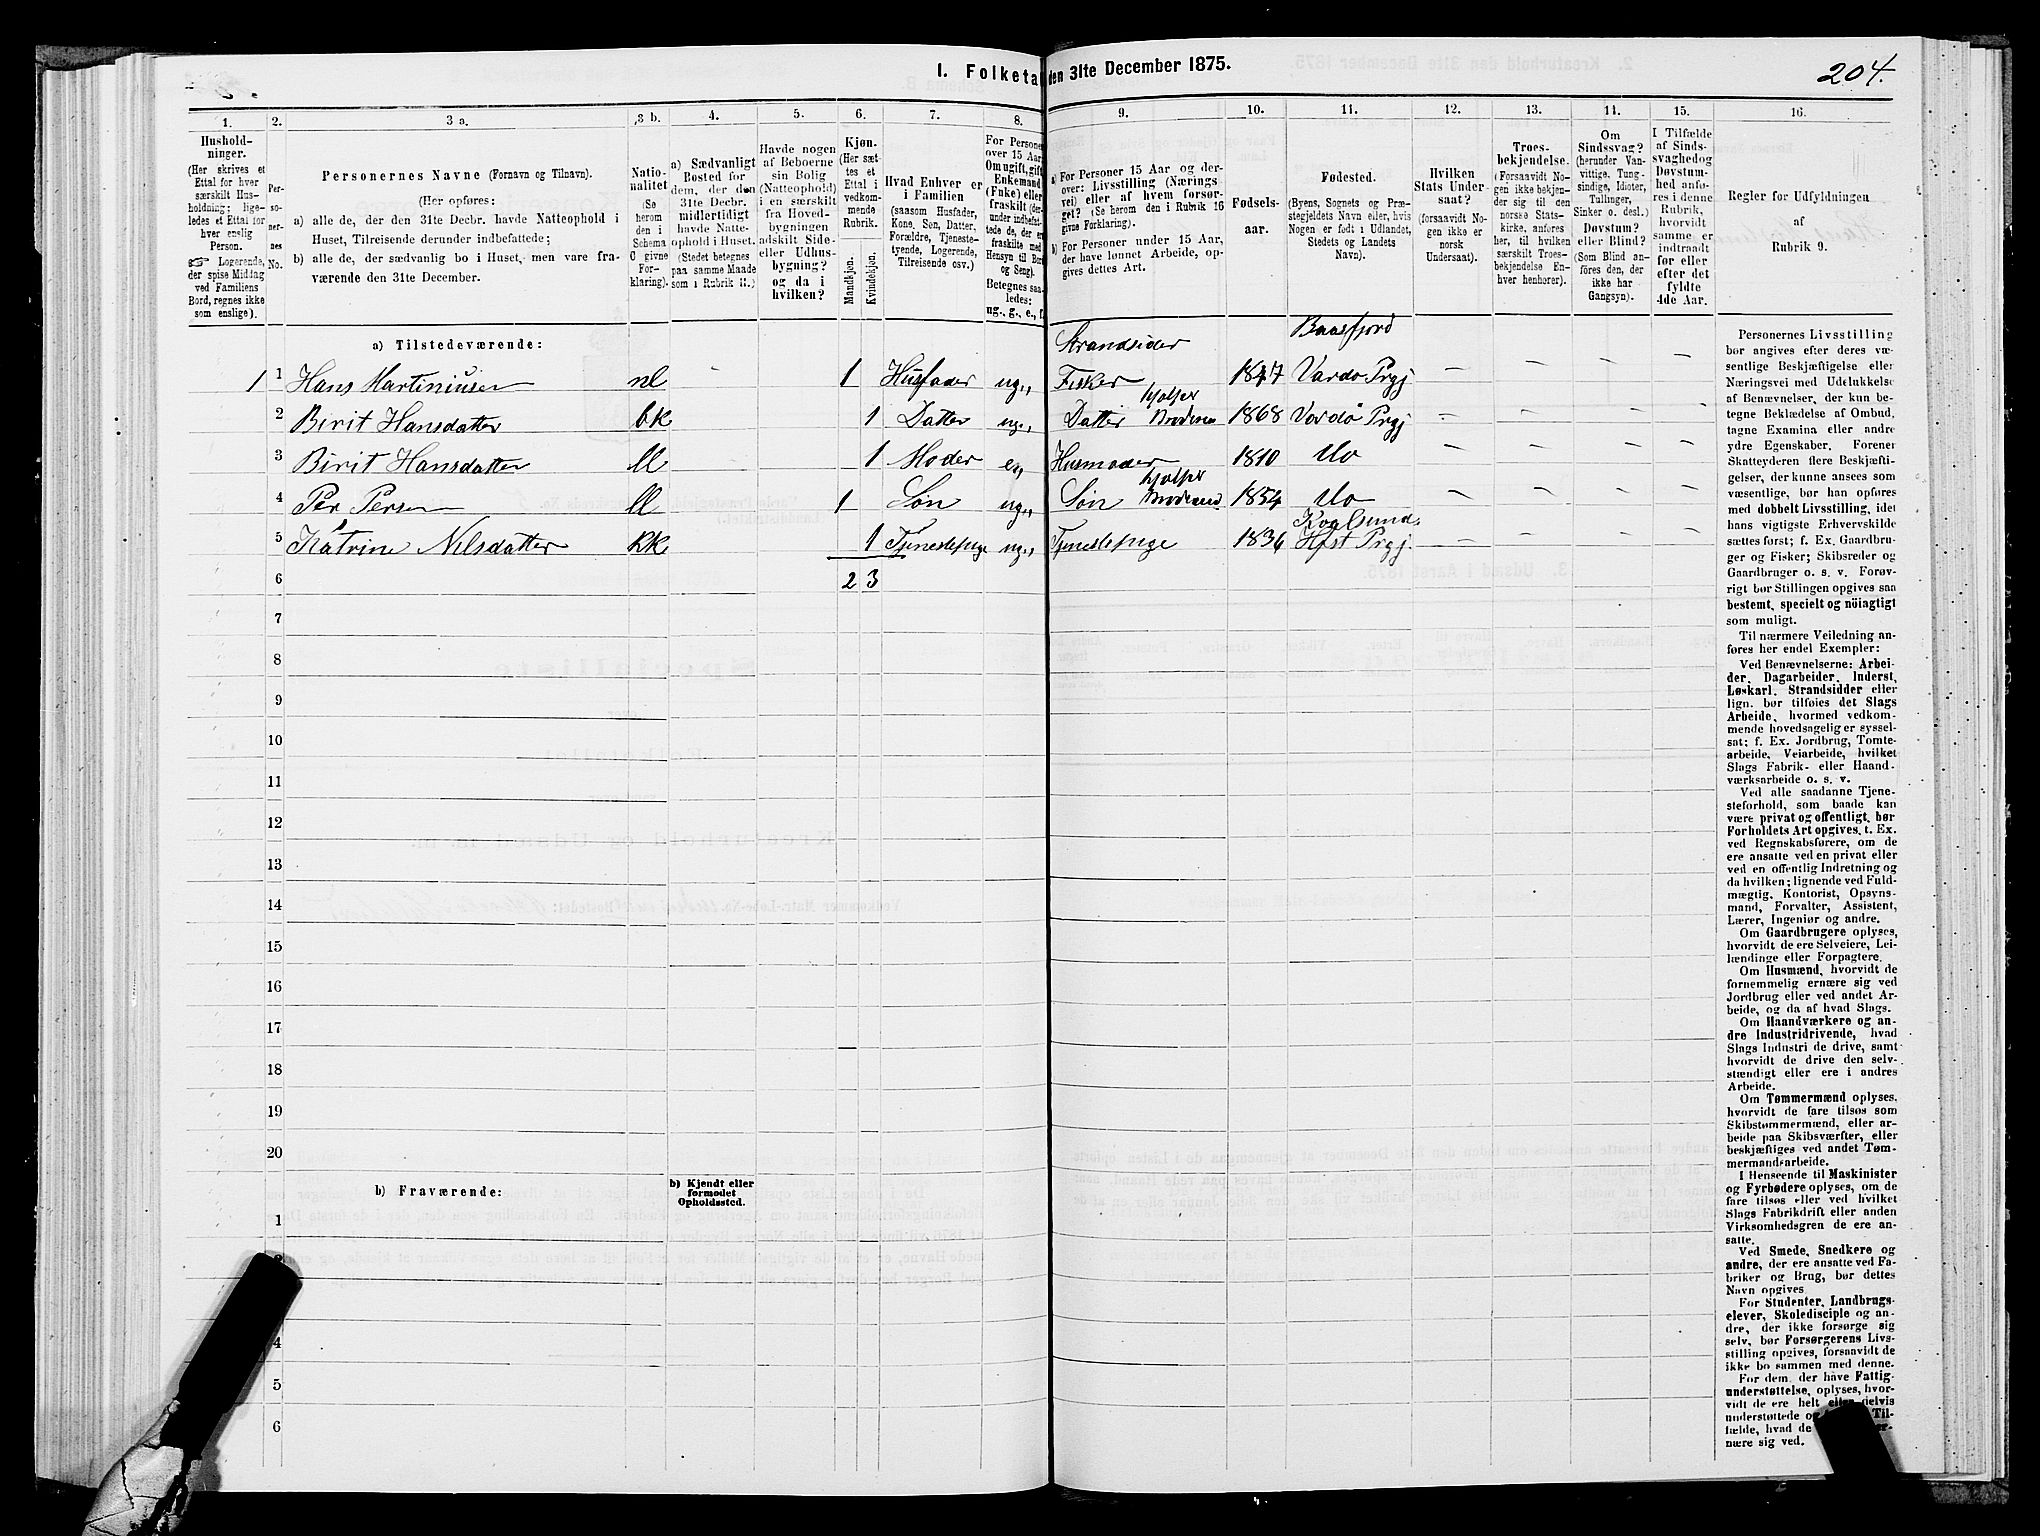 I. Folketal den 31te December 1875.
204.
1.
Hushold-
ninger.
(Her skrives et
Ettal for hver
særskilt Hus-
holdning; lige-
ledes et Ettal for
hver enslig
Person.
☞ Logerende,
der spise Middag
ved Familiens
Bord, regnes ikke
som enslige).
2.
Per-
so-
ner-
nes
No.
3 a.
Personernes Navne (Fornavn og Tilnavn).
(Her opføres:
a) alle de, der den 31te Decbr. havde Natteophold i
Huset, Tilreisende derunder indbefattede;
b) alle de, der sædvanlig bo i Huset, men vare fra-
værende den 31te December.
3 b.
Natio-
nalitet
(Se
herom
den i
Schema
C givne
For-
klaring).
4.
a) Sædvanligt
Bosted for
dem, der den
31te Decbr.
midlertidigt
havde Natte-
ophold i Huset.
(Stedet betegnes
paa samme Maade
som i Rubrik 11.)
5.
Havde nogen
af Beboerne
sin Bolig
(Natteophold)
i en særskilt
fra Hoved-
bygningen
adskilt Side-
eller Udhus-
bygning?
og da i
hvilken?
6.
Kjøn.
(Her sæt-
tes et
Ettal i
vedkom-
mende
Rubrik.
Mandkjøn.
Kvindekjøn.
7.
Hvad Enhver er
i Familien
(saasom Husfader,
Kone, Søn, Datter,
Forældre, Tjeneste-
tyende, Logerende,
Tilreisende osv.)
8.
For Personer
over 15 Aar:
Om ugift, gift,
Enkemand
(Fnke) eller
fraskilt (der-
under indbefat-
tede de, der er
fraskilte med
Hensyn til Bord
og Seng).
Betegnes saa-
ledes:
ug., g., e., f.
9.
a) For Personer 15 Aar og der-
over: Livsstilling (Nærings-
vei) eller af hvem forsør-
get? (Se herom den i Rubrik 16
givne Forklaring).
b) For Personer under 15 Aar,
der have lønnet Arbeide, op-
gives dettes Art.
10.
Fødsels-
aar.
11.
Fødested.
(Byens, Sognets og Præ-
stegjeldets Navn eller, hvis
Nogen er født i Udlandet,
Stedets og Landets
Navn).
12.
Hvilken
Stats Under-
saat?
(forsaavidt No-
gen ikke er
norsk
Undersaat).
13.
Troes-
bekjendelse.
(Forsaavidt No-
gen ikke bekjen-
der sig til den
norske Stats-
kirke, anføres
her, til hvilken
særskilt Troes-
bekjendelse En-
hver henhører).
14.
Om
Sindssvag?
(herunder Van-
vittige, Tung-
sindige, Idioter,
Tullinger,
Sinker o. desl.)
Døvstum?
eller Blind?
(Som Blind an-
føres den, der
ikke har
Gangsyn).
15.
I Tilfælde
af Sinds-
svaghed og
Døvstum-
hed anfø-
res i denne
Rubrik,
hvorvidt
samme er
indtraadt
før eller
efter det
fyldte
4de Aar.
16.
Regler for Udfyldningen
af
Rubrik 9.
a) Tilstedeværende: Strandsider Baasfjord
1 1 Hans Martiniusen nl - 1 Husfader ug., Fisker 1847 Vardø Prgj - - - -
hjælper
2 Birit Hansdatter bk 1 Datter ug., Datter Moderen 1868 Vardø Prgj - - - -
3 Birit Hansdatter ll 1 Moder e, Husmoder 1810 do - - - -
hjælper
4 Per Persen ll 1 Søn ug., Søn Moderen 1854 do - - - -
Kvalsund
5 Katrine Nilsdatter kk 1 Tjenestepige ug., Tjenestepige 1836 Hfst Prgj. - - - -
6 2 3
7
8
9
10
11
12
13
14
15
16
17
18
19
20
b) Fraværende:
b) Kjendt eller
formodet
Opholdssted.
1
4
5
6
Personernes Livsstilling
bør angives efter deres væ-
sentlige Beskjæftigelse eller
Næringsvei med Udelukkelse
af Benævnelser, der kun be-
tegne Beklædelse af Ombud,
tagne Examina eller andre
ydre Egenskaber. Forener
Skatteyderen flere Beskjæfti-
gelser, der kunne ansees som
væsentlige, bør han opføres
med dobbelt Livsstilling, idet
hans vigtigste Erhvervskilde
sættes først; f. Ex. Gaardbru-
ger og Fisker; Skibsreder og
Gaardbruger o. s. v. Forøv-
rigt bør Stillingen opgives saa
bestemt, specielt og nöiagtigt
som muligt.
Til nærmere Veiledning an-
føres her endel Exempler:
Ved Benævnelserne: Arbei-
der, Dagarbeider, Inderst,
Løskarl, Strandsidder eller
lign. bør tilføies det Slags
Arbeide, hvormed vedkom-
mende hovedsagelig er syssel-
sat; f. Ex. Jordbrug, Tomte-
arbeide, Veiarbeide, hvilket
Slags Fabrik- eller Haand-
værksarbeide o. s. v.
Ved alle saadanne Tjene-
steforhold, som baade kan
være privat og offentligt, bør
Forholdets Art opgives, t. Ex.
ved Regnskabsførere, om de
ere ansatte ved en privat eller
ved en offentlig Indretning og
da hvilken; lignende ved Fuld-
mægtig, Kontorist, Opsyns-
mand, Forvalter, Assistent,
Lærer, Ingeniør og andre.
Om Gaardbrugere oplyses,
hvorvidt de ere Selveiere, Lei-
lændinge eller Forpagtere.
Om Husmænd, hvorvidt de
fornemmelig ernære sig ved
Jordbrug eller ved andet Ar-
beide, og da af hvad Slags.
Om Haandværkere og an-
dre Industridrivende, hvad
Slags Industri de drive, samt
hvorvidt de drive den selv-
stændigt eller ere i andres
Arbeide.
Om Tømmermænd oplyses,
hvorvidt de fare tilsøs som
Skibstømmermænd, eller ar-
beide paa Skibsværfter, eller
beskjæftiges ved andet Tøm-
mermandsarbeide.
I Henseende til Maskinister
og Fyrbødere oplyses, om de
fare tilsøs eller ved hvilket
Slags Fabrikdrift eller anden
Virksomhedsgren de ere an-
satte.
Ved Smede, Snedkere og
andre, der ere ansatte ved Fa-
briker og Brug, bør dettes
Navn opgives.
For Studenter, Landbrugs-
elever, Skoledisciple og an-
dre, der ikke forsørge sig
selv, bør Forsørgerens Livs-
stilling opgives, forsaavidt de
ikke bo sammen med denne.
For dem, der have Fattig-
understøttelse, oplyses, hvor-
vidt de ere helt eller delvis
understøttede og Til-
fælde, hvad de er-
nære sig ved.